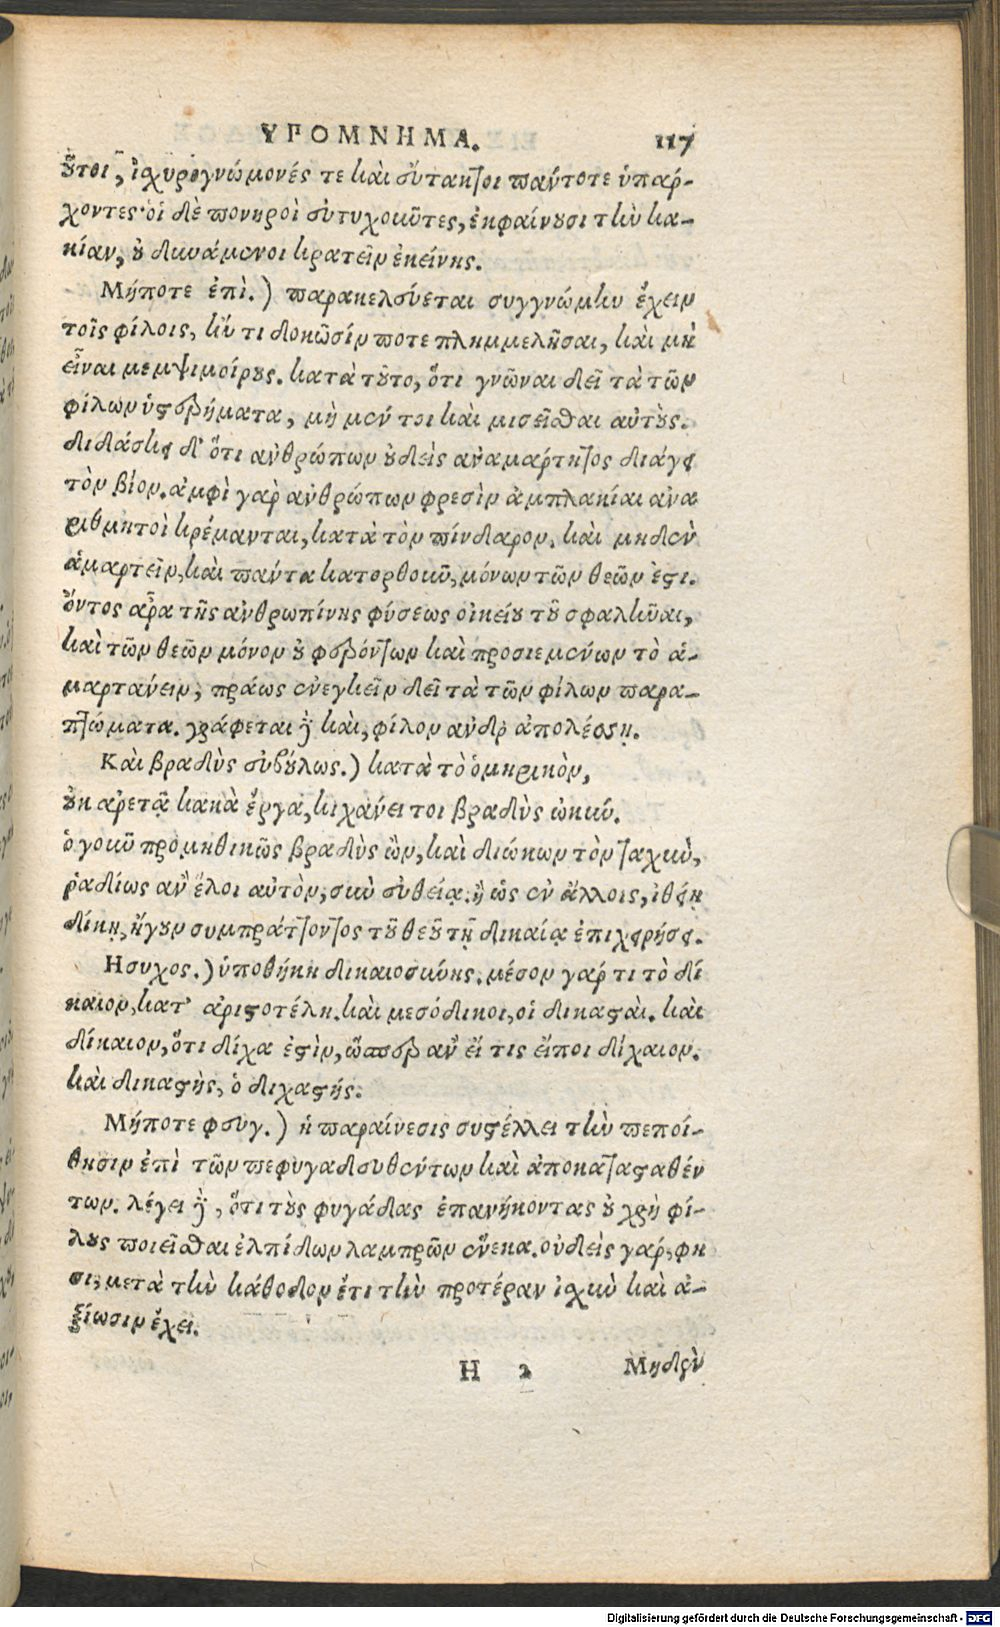 ΥΠΟΜΝΗΜΑ. 117
οὗτοι, ἰσχυρογνώμονές τε καὶ εὔτακτοι πάντοτε ὑπάρ-
χοντες· οἱ δὲ πονηροὶ εὐτυχοῦντες, ἐκφαίνουσι τὴν κα-
κίαν, οὐ δυνάμενοι κρατεῖν ἐκείνης.
Μήποτε ἐπὶ.) παρακελεύεται συγγνώμην ἔχειν
τοῖς φίλοις, κἄν τι δοκῶσίν ποτε πλημμελῆσαι, καὶ μὴ
εἶναι μεμψιμοίρους. κατὰ τοῦτο, ὅτι γνῶναι δεῖ τὰ τῶν
φίλων ὑστερήματα, μὴ μέν τοι καὶ μισεῖσθαι αὐτούς.
διδάσκει δ' ὅτι ἀνθρώπων οὐδεὶς ἀναμάρτητος διάγει
τὸν βίον. ἀμφὶ γὰρ ἀνθρώπων φρεσὶν ἀμπλακίαι ἀνα
ριθμητοὶ κρέμανται, κατὰ τὸν πίνδαρον. καὶ μηδὲν
ἁμαρτεῖν, καὶ πάντα κατορθοῦν, μόνων τῶν θεῶν ἐστι.
ὄντος ἆρα τῆς ἀνθρωπίνης φύσεως οἰκείου τοῦ σφαλῆναι,
καὶ τῶν θεῶν μόνον οὐ φερόντων καὶ προσιεμένων τὸ ἁ-
μαρτάνειν, πράως ἐνεγκεῖν δεῖ τὰ τῶν φίλων παρα-
πτώματα. γράφεται δὲ καὶ, φίλον ἄνδρ' ἀπολέσῃ.
Καὶ βραδὺς εὔβουλος.) κατὰ τὸ ὁμηρικὸν,
οὐκ ἀρετᾷ κακὰ ἔργα, κιχάνει τοι βραδὺς ὠκύν.
ὁ γοῦν προμηθικῶς βραδὺς ὢν, καὶ διώκων τὸν ταχὺν,
ῥαδίως ἂν ἕλοι αὐτὸν, σὺν εὐθείᾳ. ἢ ὡς ἐν ἄλλοις, ἰθείῃ
δίκῃ, ἤγουν συμπράττοντος τοῦ θεοῦ τῇ δικαίᾳ ἐπιχειρήσει.
Ησυχος.) ὑποθήκη δικαιοσύνης. μέσον γάρ τι τὸ δί
καιον, κατ' ἀριστοτέλη. καὶ μεσόδικοι, οἱ δικασταὶ. καὶ
δίκαιον, ὅτι δίχα ἐστὶν, ὥσπερ ἂν εἴ τις εἴποι δίχαιον.
καὶ δικαστής, ὁ διχαστής.
Μήποτε φευγ.) ἡ παραίνεσις συστέλλει τὴν πεποί-
θησιν ἐπὶ τῶν πεφυγαδευθέντων καὶ ἀποκατασταθέν
των. λέγει δὲ, ὅτι τοὺς φυγάδας ἐπανήκοντας οὐ χρὴ φί-
λους ποιεῖσθαι ἐλπίδων λαμπρῶν ἕνεκα. οὐδεὶς γάρ, φη
σι, μετὰ τὴν κάθοδον ἔτι τὴν προτέραν ἰσχὺν καὶ ἀ-
ξίωσιν ἔχει.
H 2 Μηδὲν
Digitalisierung gefördert durch die Deutsche Forschungsgemeinschaft - DFG